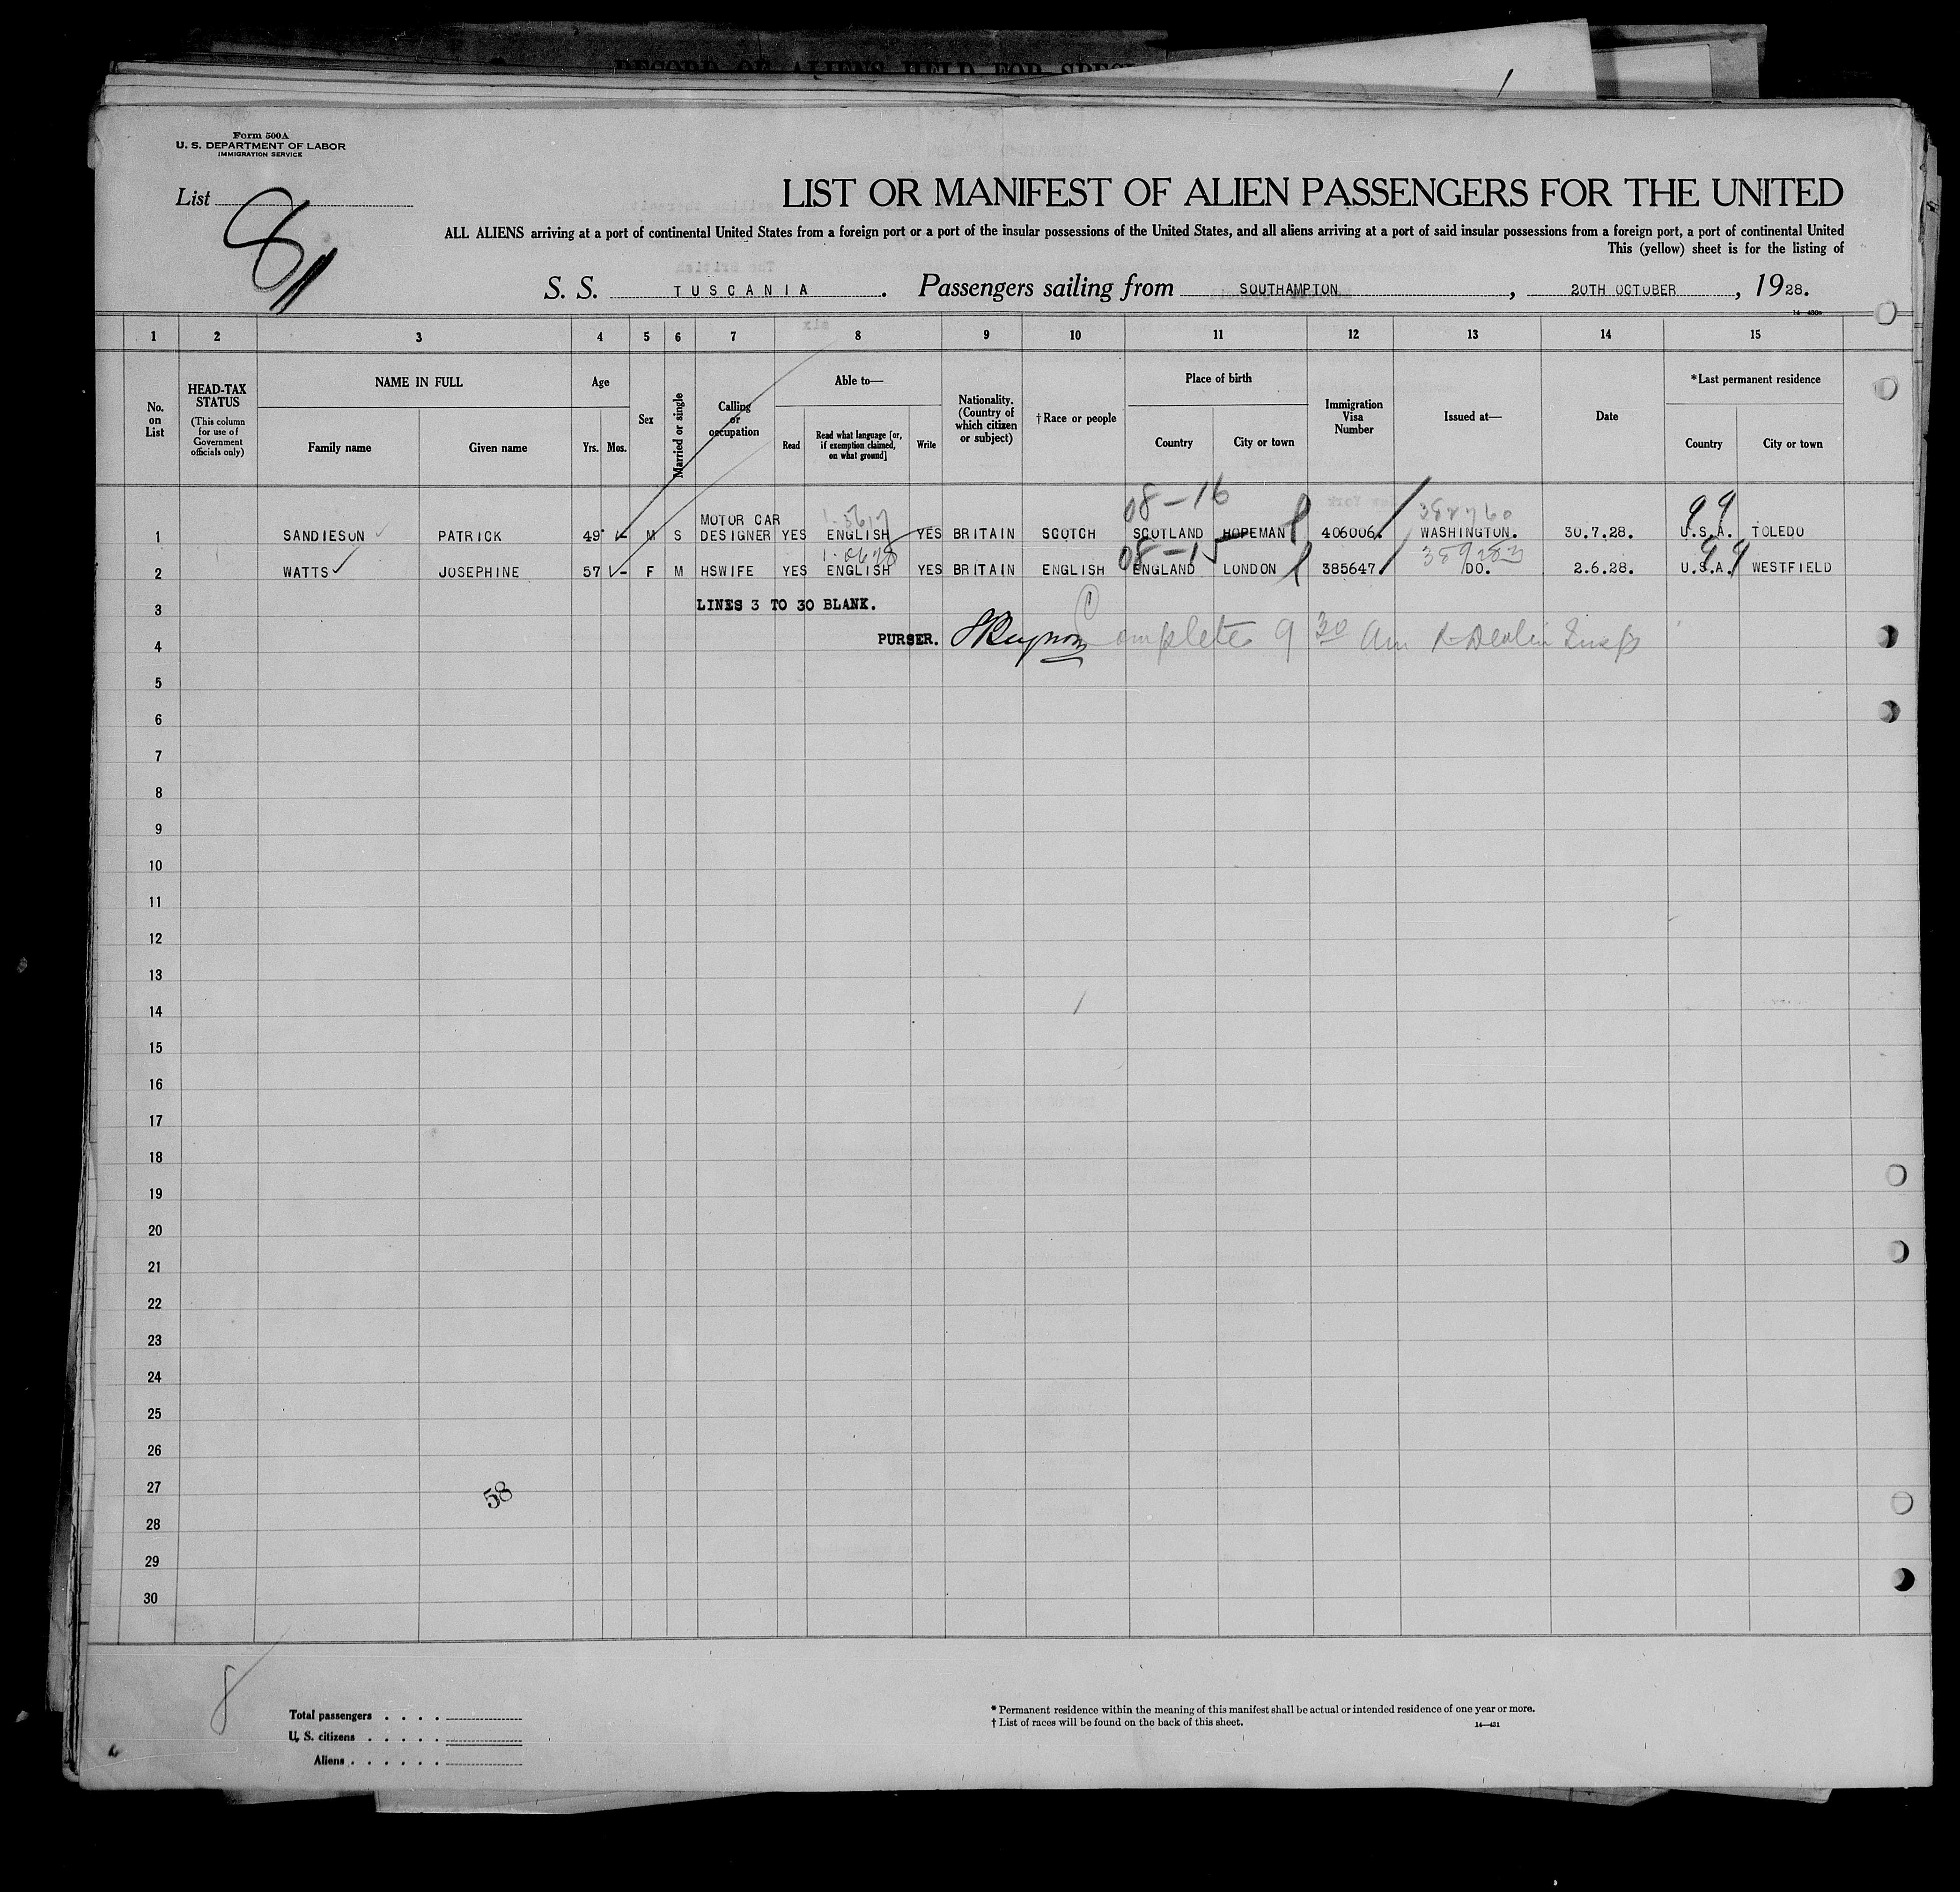 RECORD OF ALIENS HELD FOR SPECI
Form 500A
U. S. DEPARTMENT OF LABOR
IMMIGRATION SERVICE
List 8
LIST OR MANIFEST OF ALIEN PASSENGERS FOR THE UNITED
ALL ALIENS arriving at a port of continental United States from a foreign port or a port of the insular possessions of the United States, and all aliens arriving at a port of said insular possessions from a foreign port, a port of continental United
This (yellow) sheet is for the listing of
S. S. TUSCANIA. Passengers sailing from SOUTHAMPTON, 20TH OCTOBER, 1928.
14—430a
1 2 3 4 5 6 7 8 9 10 11 12 13 14 15
No. on List
HEAD-TAX STATUS (This column for use of Government officials only)
NAME IN FULL
Family name Given name
Age
Yrs. Mos.
Sex
Married or single
Calling or occupation
Able to—
Read Read what language [or, if exemption claimed, on what ground] Write
Nationality. (Country of which citizen or subject)
†Race or people
Place of birth
Country City or town
Immigration Visa Number
Issued at—
Date
*Last permanent residence
Country City or town
08-16 99
1 SANDIESON PATRICK 49 M S MOTOR CAR DESIGNER YES ENGLISH YES BRITAIN SCOTCH SCOTLAND HOPEMAN 406006. WASHINGTON. 30.7.28. U.S.A. TOLEDO
08-15 99
2 WATTS JOSEPHINE 57 F M HSWIFE YES ENGLISH YES BRITAIN ENGLISH ENGLAND LONDON 385647 DO. 2.6.28. U.S.A. WESTFIELD
3 LINES 3 TO 30 BLANK.
4 PURSER. Complete 9 30 am
5
6
7
8
9
10
11
12
13
14
15
16
17
18
19
20
21
22
23
24
25
26
27
58
28
29
30
8
Total passengers . . . .
U. S. citizens . . . . .
Aliens . . . . . .
* Permanent residence within the meaning of this manifest shall be actual or intended residence of one year or more.
† List of races will be found on the back of this sheet.
14—431